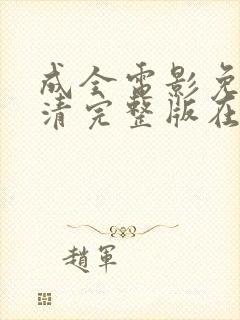 成全電影免
清完整版在
趙軍